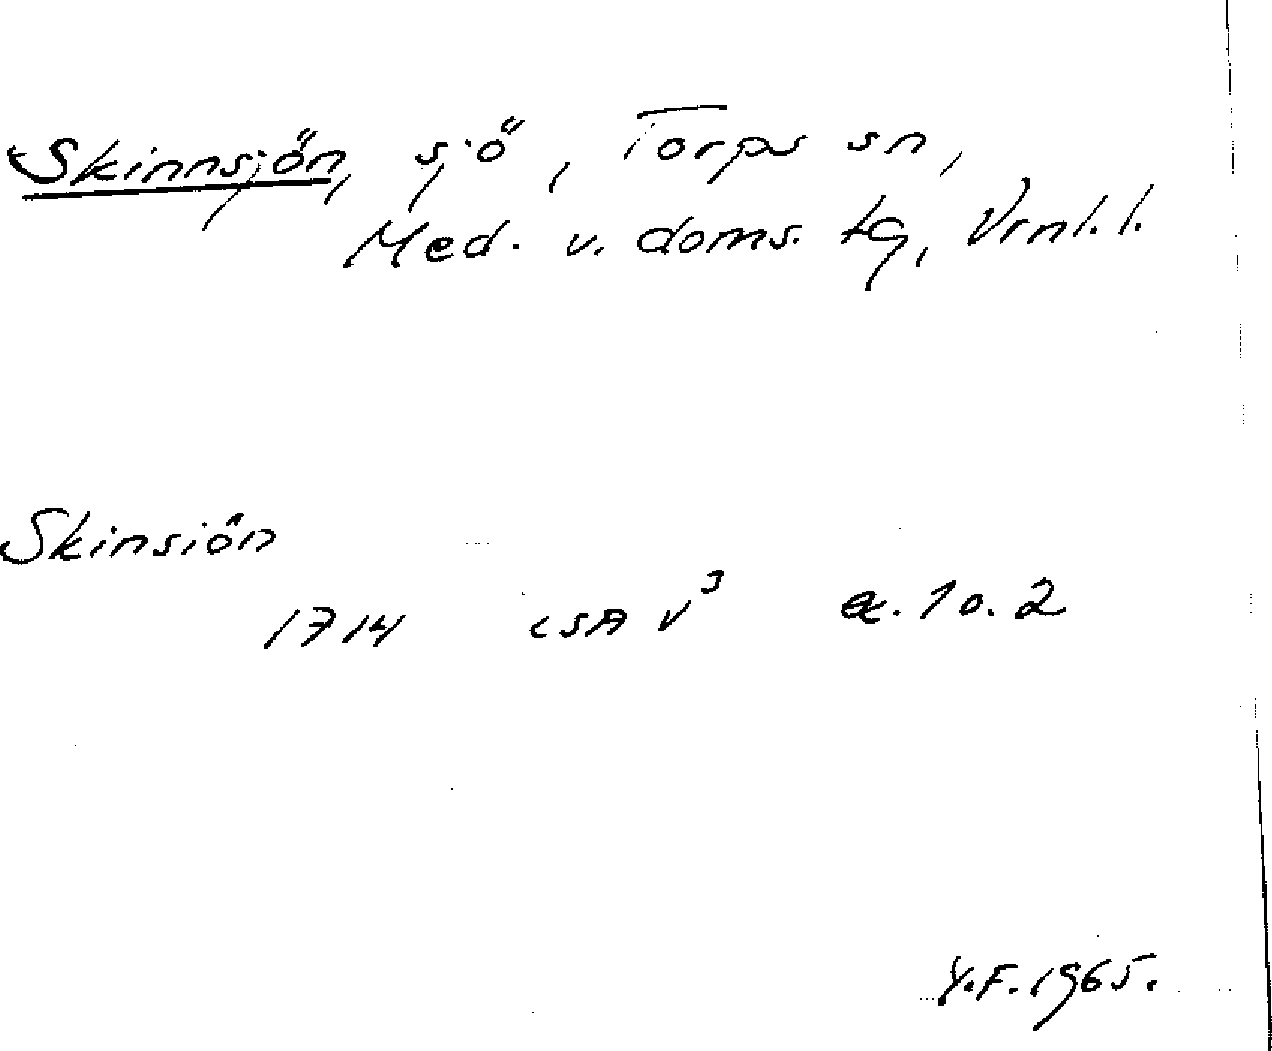 Skinnsjön, sjö, Torps sn,
Med. v. doms. tg, Vrnl. l.
Skinsiön
1714 LSA V³ æ. 1 o. 2
Y.F. 1965.